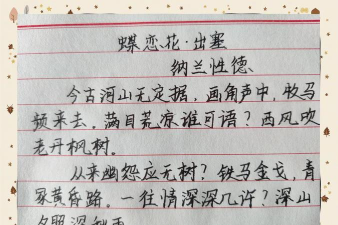 蝶恋花·出塞
纳兰性德
今古河山无定据，画角声中，牧马
频来去。满目荒凉谁可语？西风吹
老丹枫树。
从来幽怨应无树？铁马金戈，青
冢黄昏路。一往情深深几许？深山
夕照深秋雨